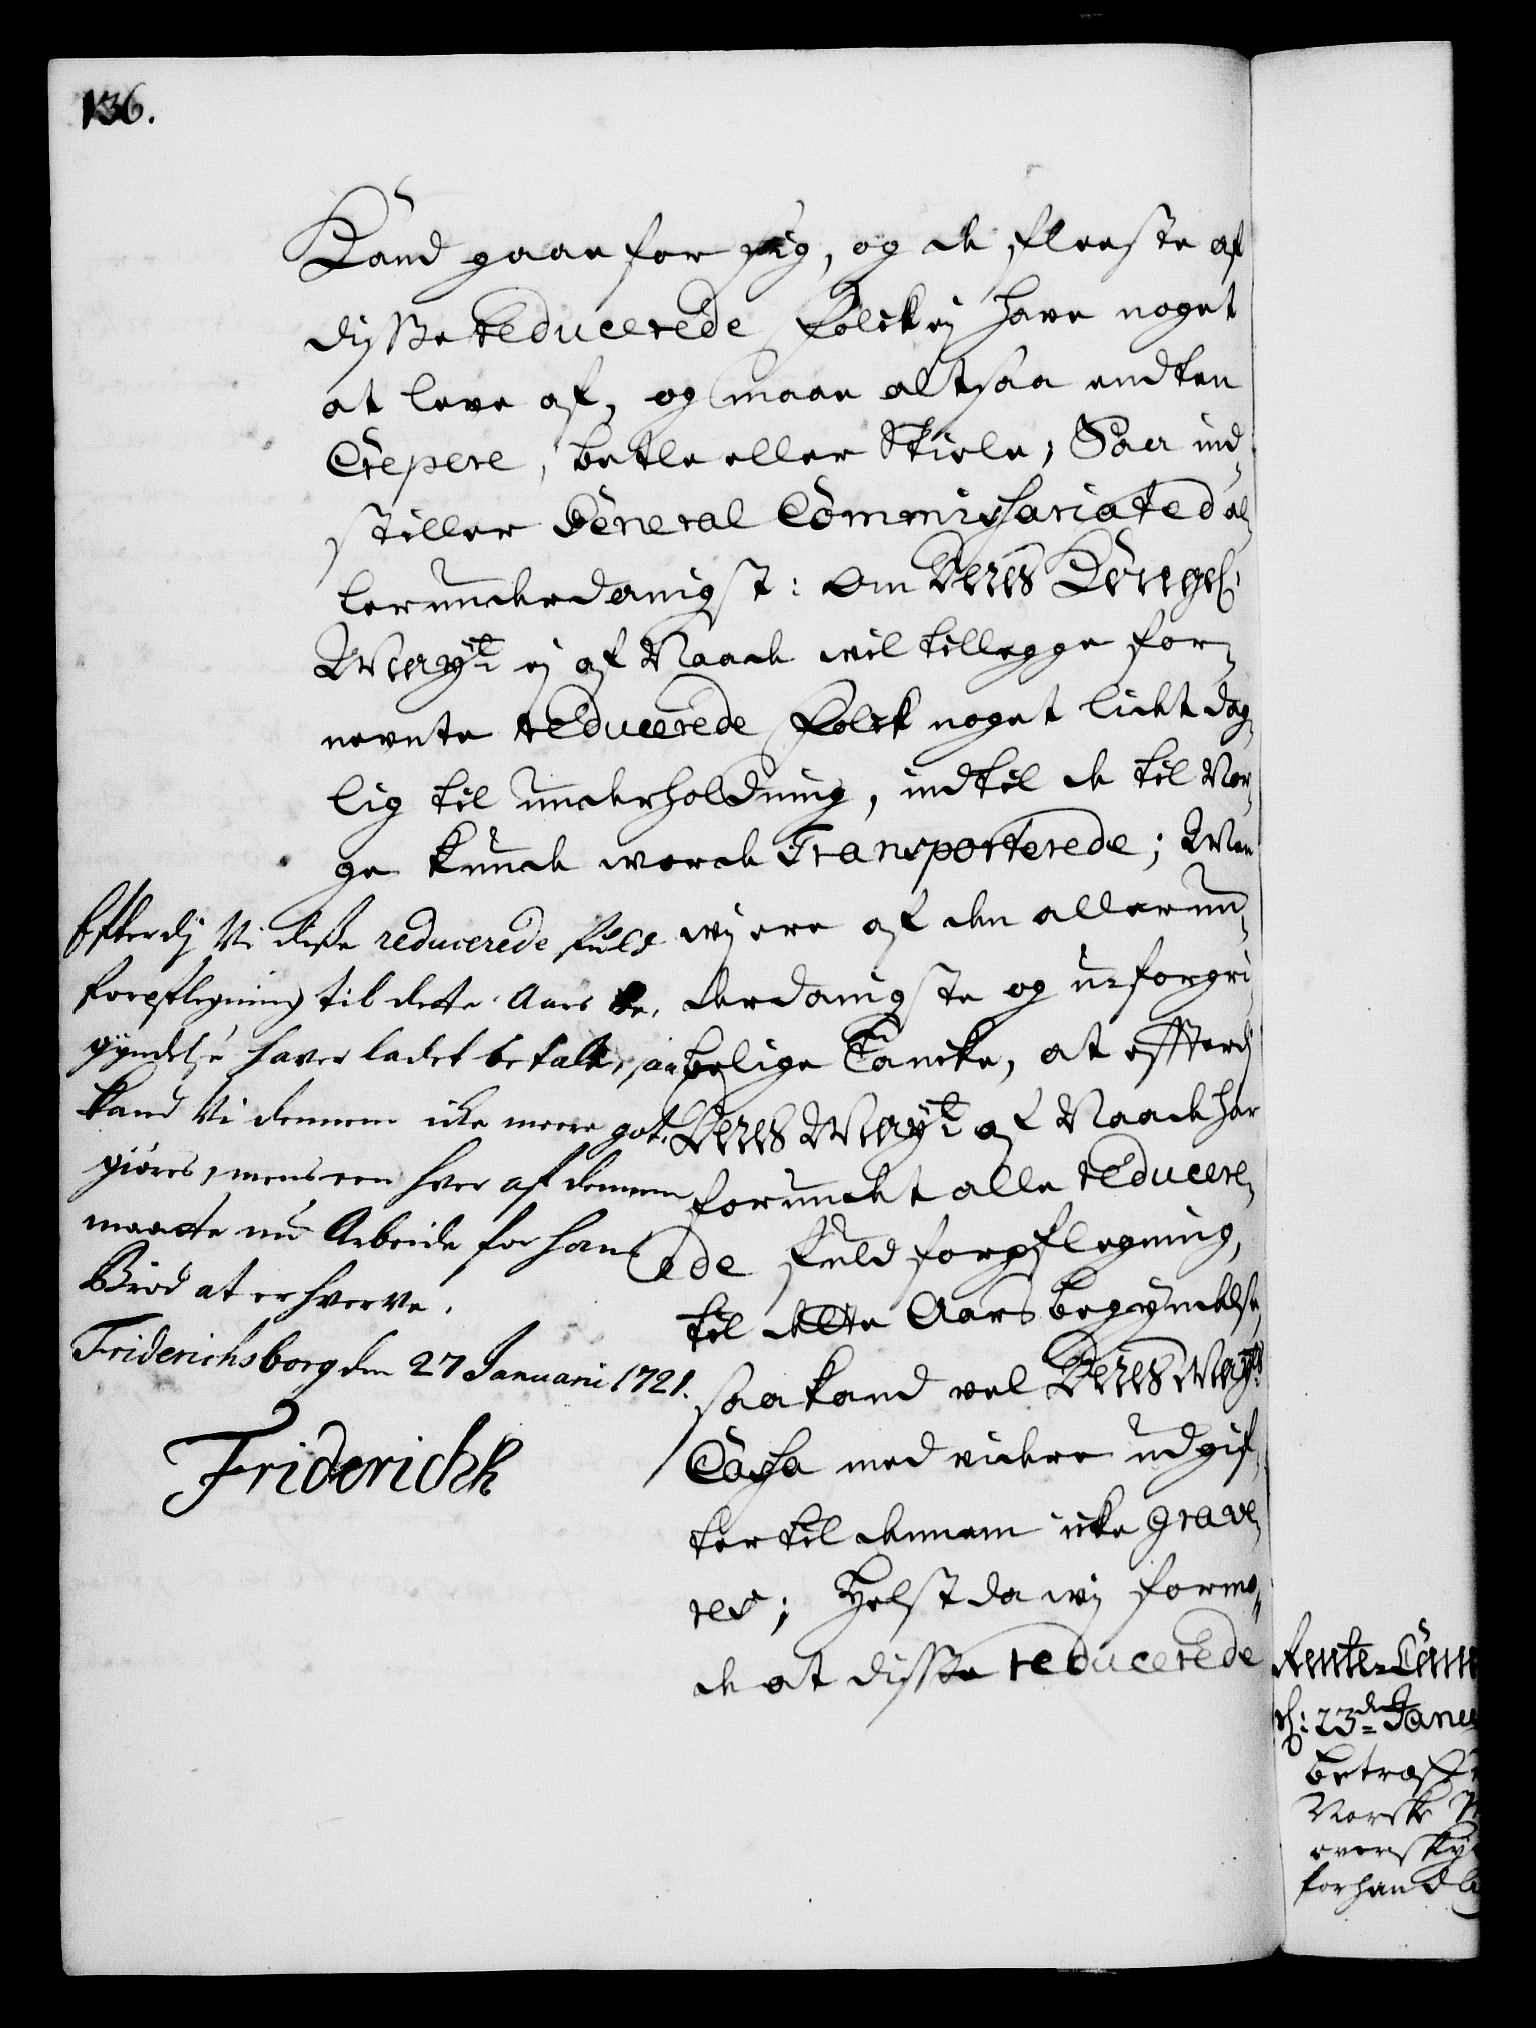 136.
Kand gaae for sig, og de fleeste af
disse reducerede Folck ej have noget
at leve af, og maae altsaa endten
Crepere, betle eller Stiele; Saa ind-
stiller General Commissariated al-
lerunderdanigst: Om Deres Kongel:
Mayt ej af Naade vil tillegge for-
nevnte reducerede Folck noget lidet dag-
lig til underholdning, indtil de til Nor-
ge kunde worde Transporterede; Men
wj ere af den allerun-
derdanigste og uforgri-
belige Tancke, at effterdj
Deres Mayt af Naade har
forundt alle reducere-
de fuld forpflegning,
til dette Aars begyndelse,
saa kand vel Deres Mayts
Cassa med videre udgif-
ter til dennem icke grave-
res; Helst da wj formo-
de at disse reducerede
Efterdj Vi disse reducerede fuld
forpflegning til dette Aars be-
gyndelse haver ladet betale, saa
kand Vi dennem icke meere got-
giøres, mens een hver af dennem
maatte nu Arbeide for hans
Brød at erhverve.
Friderichsborg den 27 Januarii 1721.
Friderich R
Rente-Cam
d: 23de Janua
betræf
Norske
oversky
forhandl